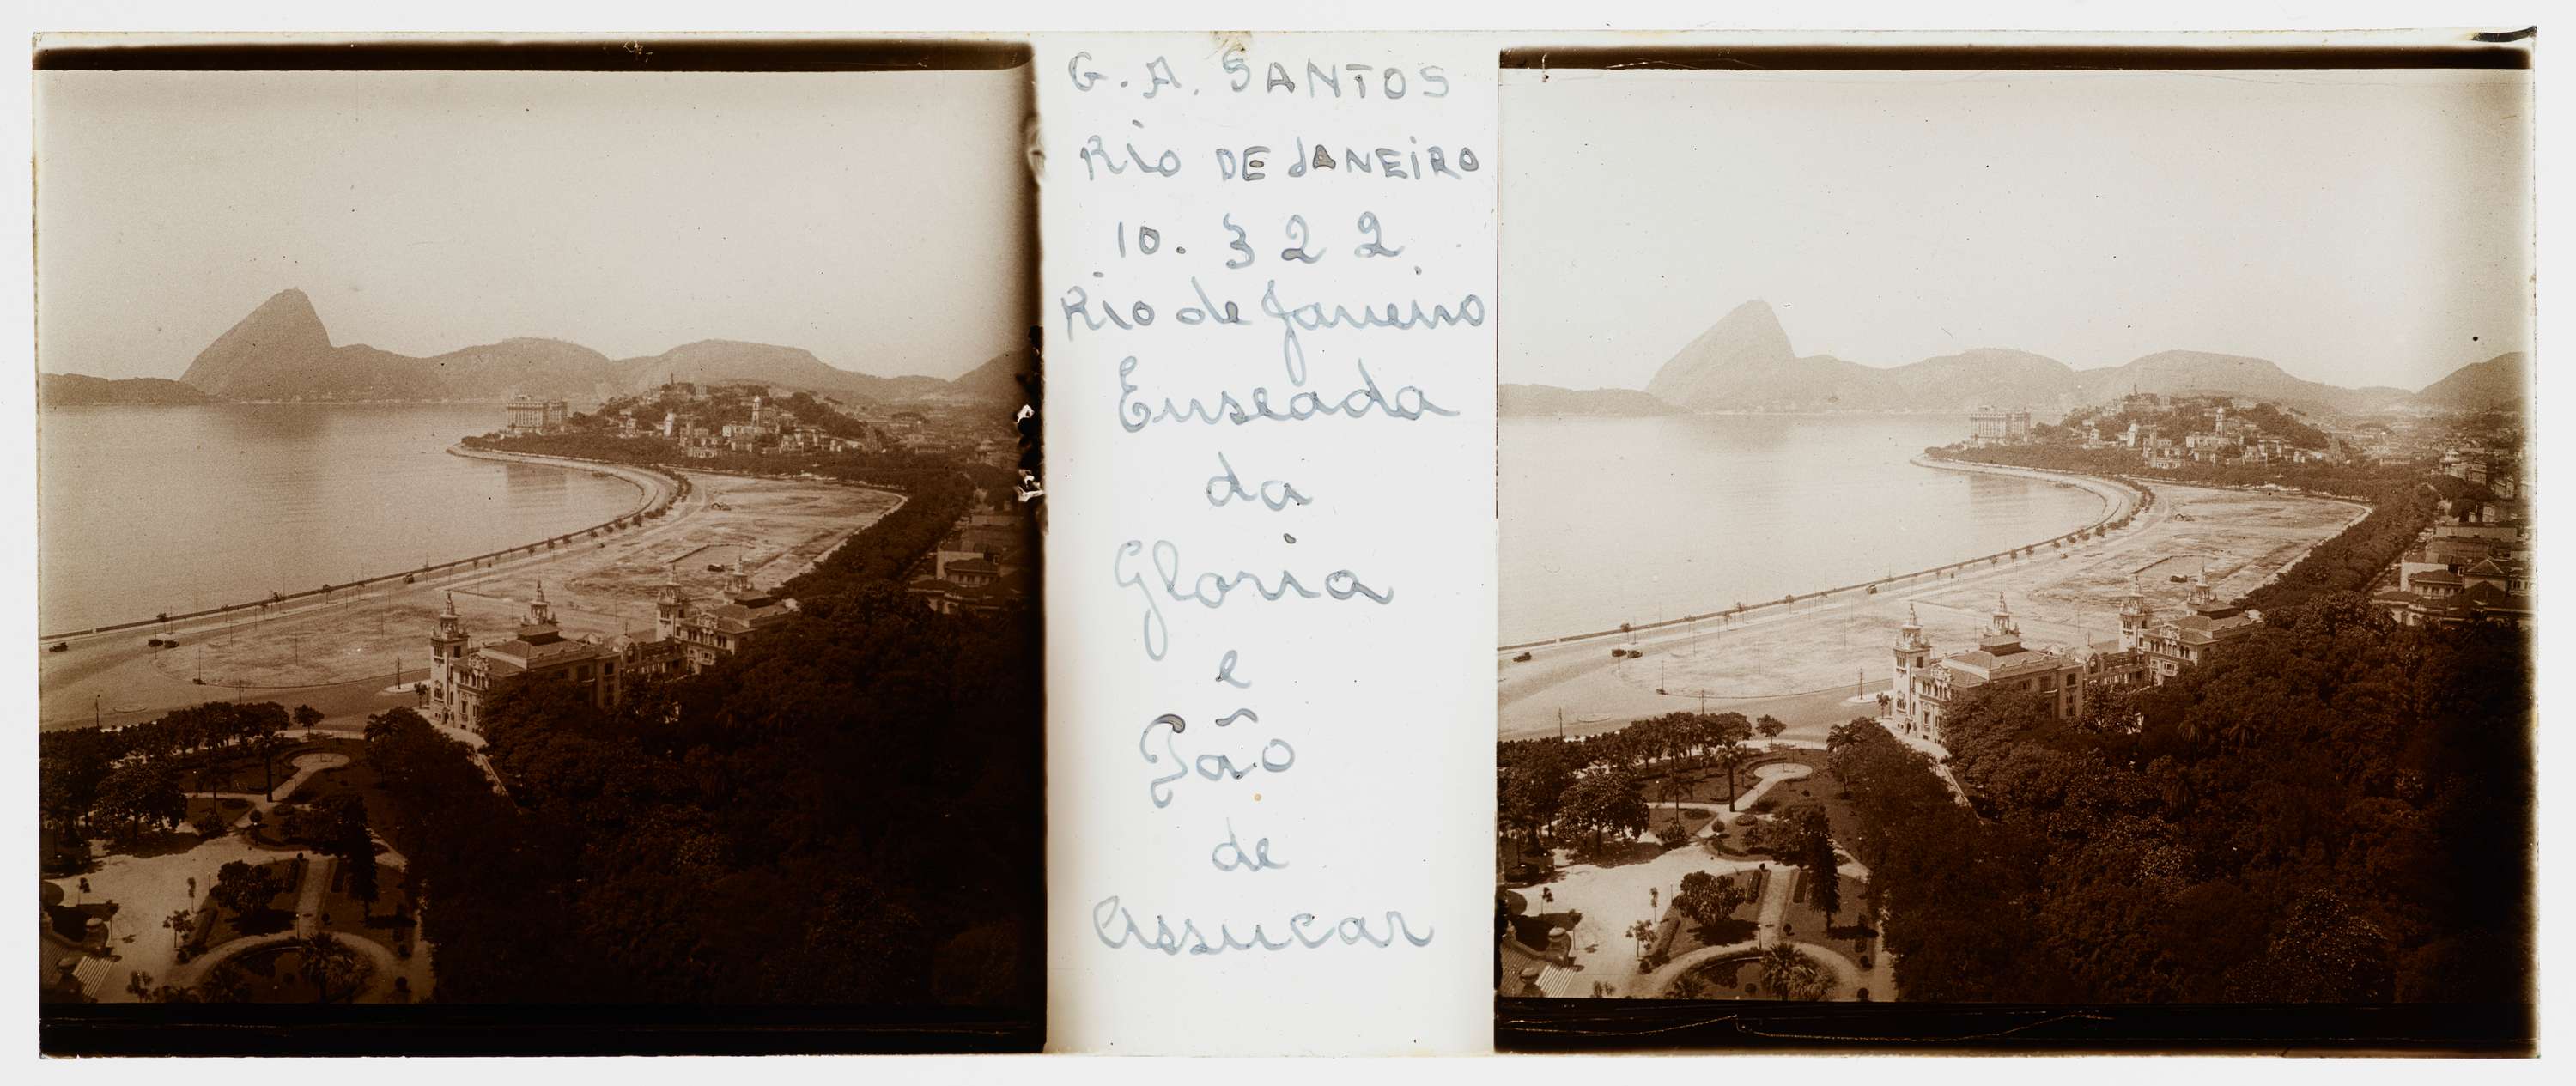 G. A. SANTOS
Rio DE JANEiRO
10. 322
Rio de Janeiro
Enseada
da
Gloria
e
Pão
de
Assucar